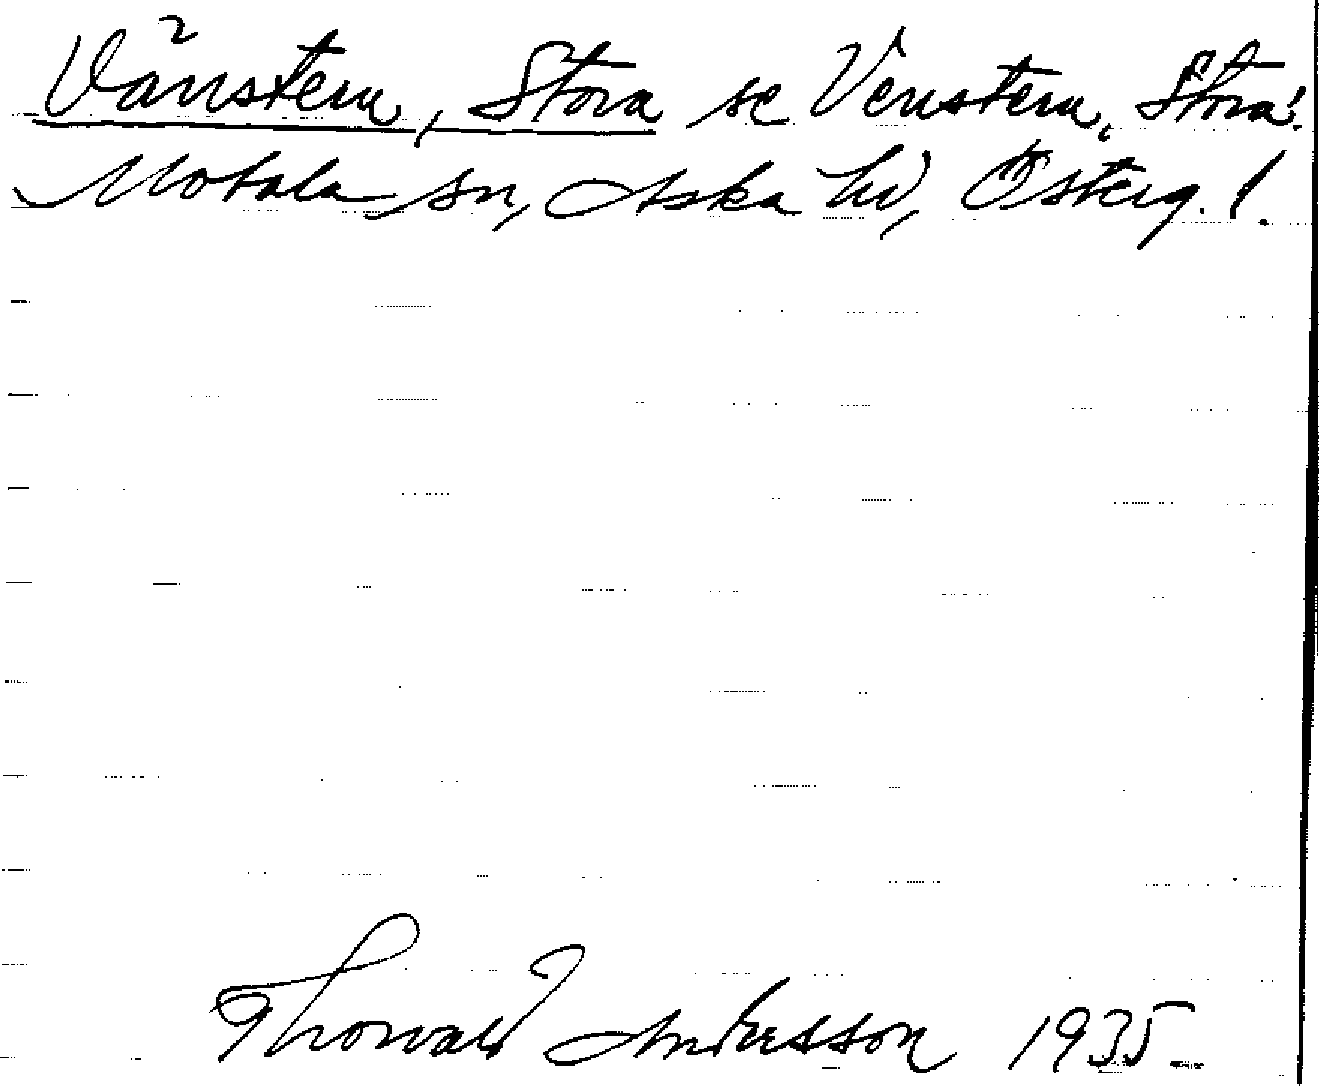 Vänstern, Stora se Venstern, Stora!
Motala sn, Aska hd, Österg. l.
Thorvald Andersson 1935